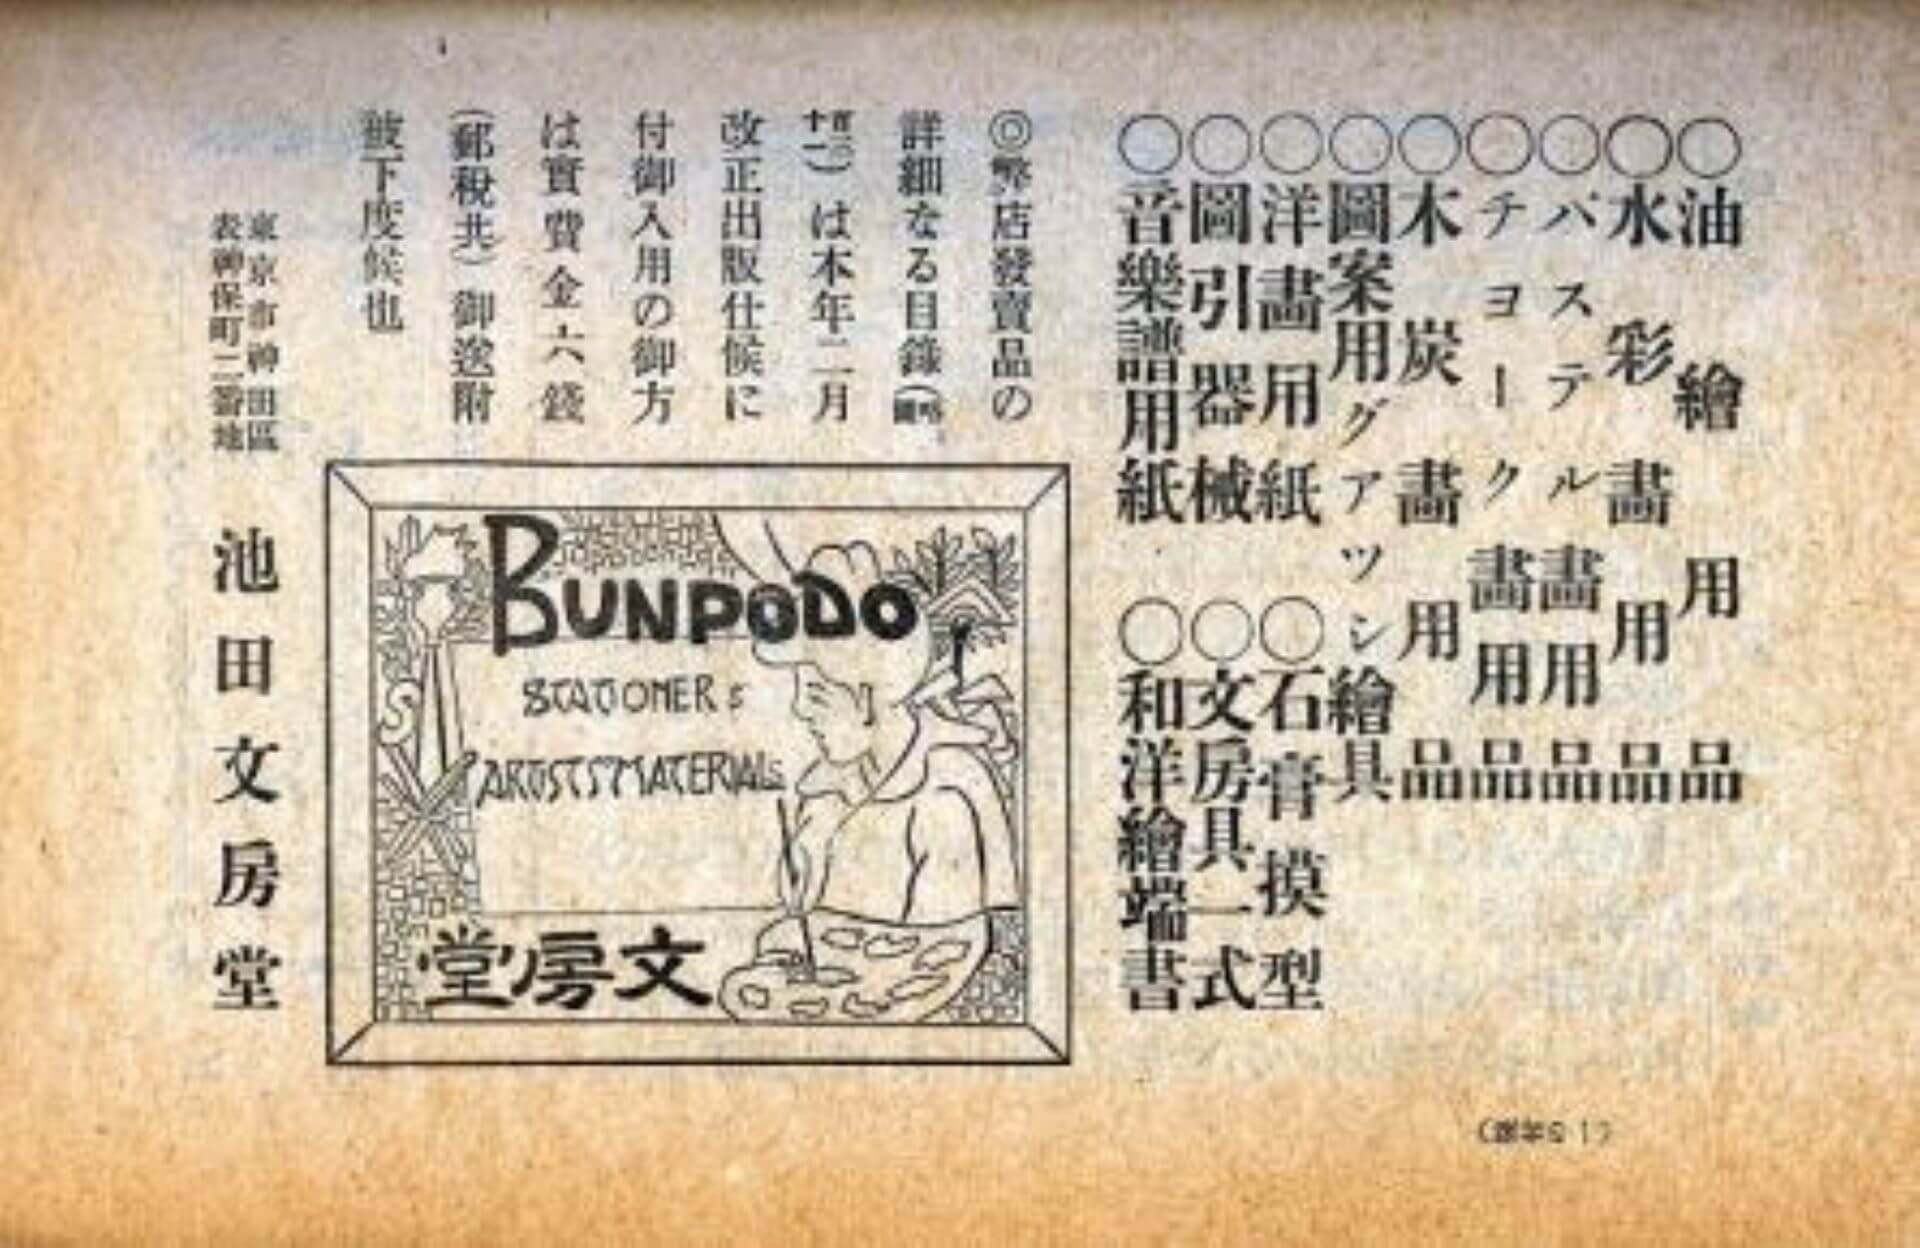 ○油繪用品
○水彩畫用品
○パステル畫用品
○チヨーク畫用品
○木炭畫用品
○圖案用グアツシ繪具
○洋畫用紙
○石膏摸型
○圖引器械
○文房具一式
○音樂譜用紙
○和洋繪端書
◎弊店發賣品の
詳細なる目錄(略圖
百三十一)は本年二月
改正出版仕候に
付御入用の御方
は實費金六錢
(郵税共)御送附
被下度候也
BUNPODO
STATIONERS
ARTISTS'MATERIALS
堂房文
東京市神田區
表神保町二番地
池田文房堂